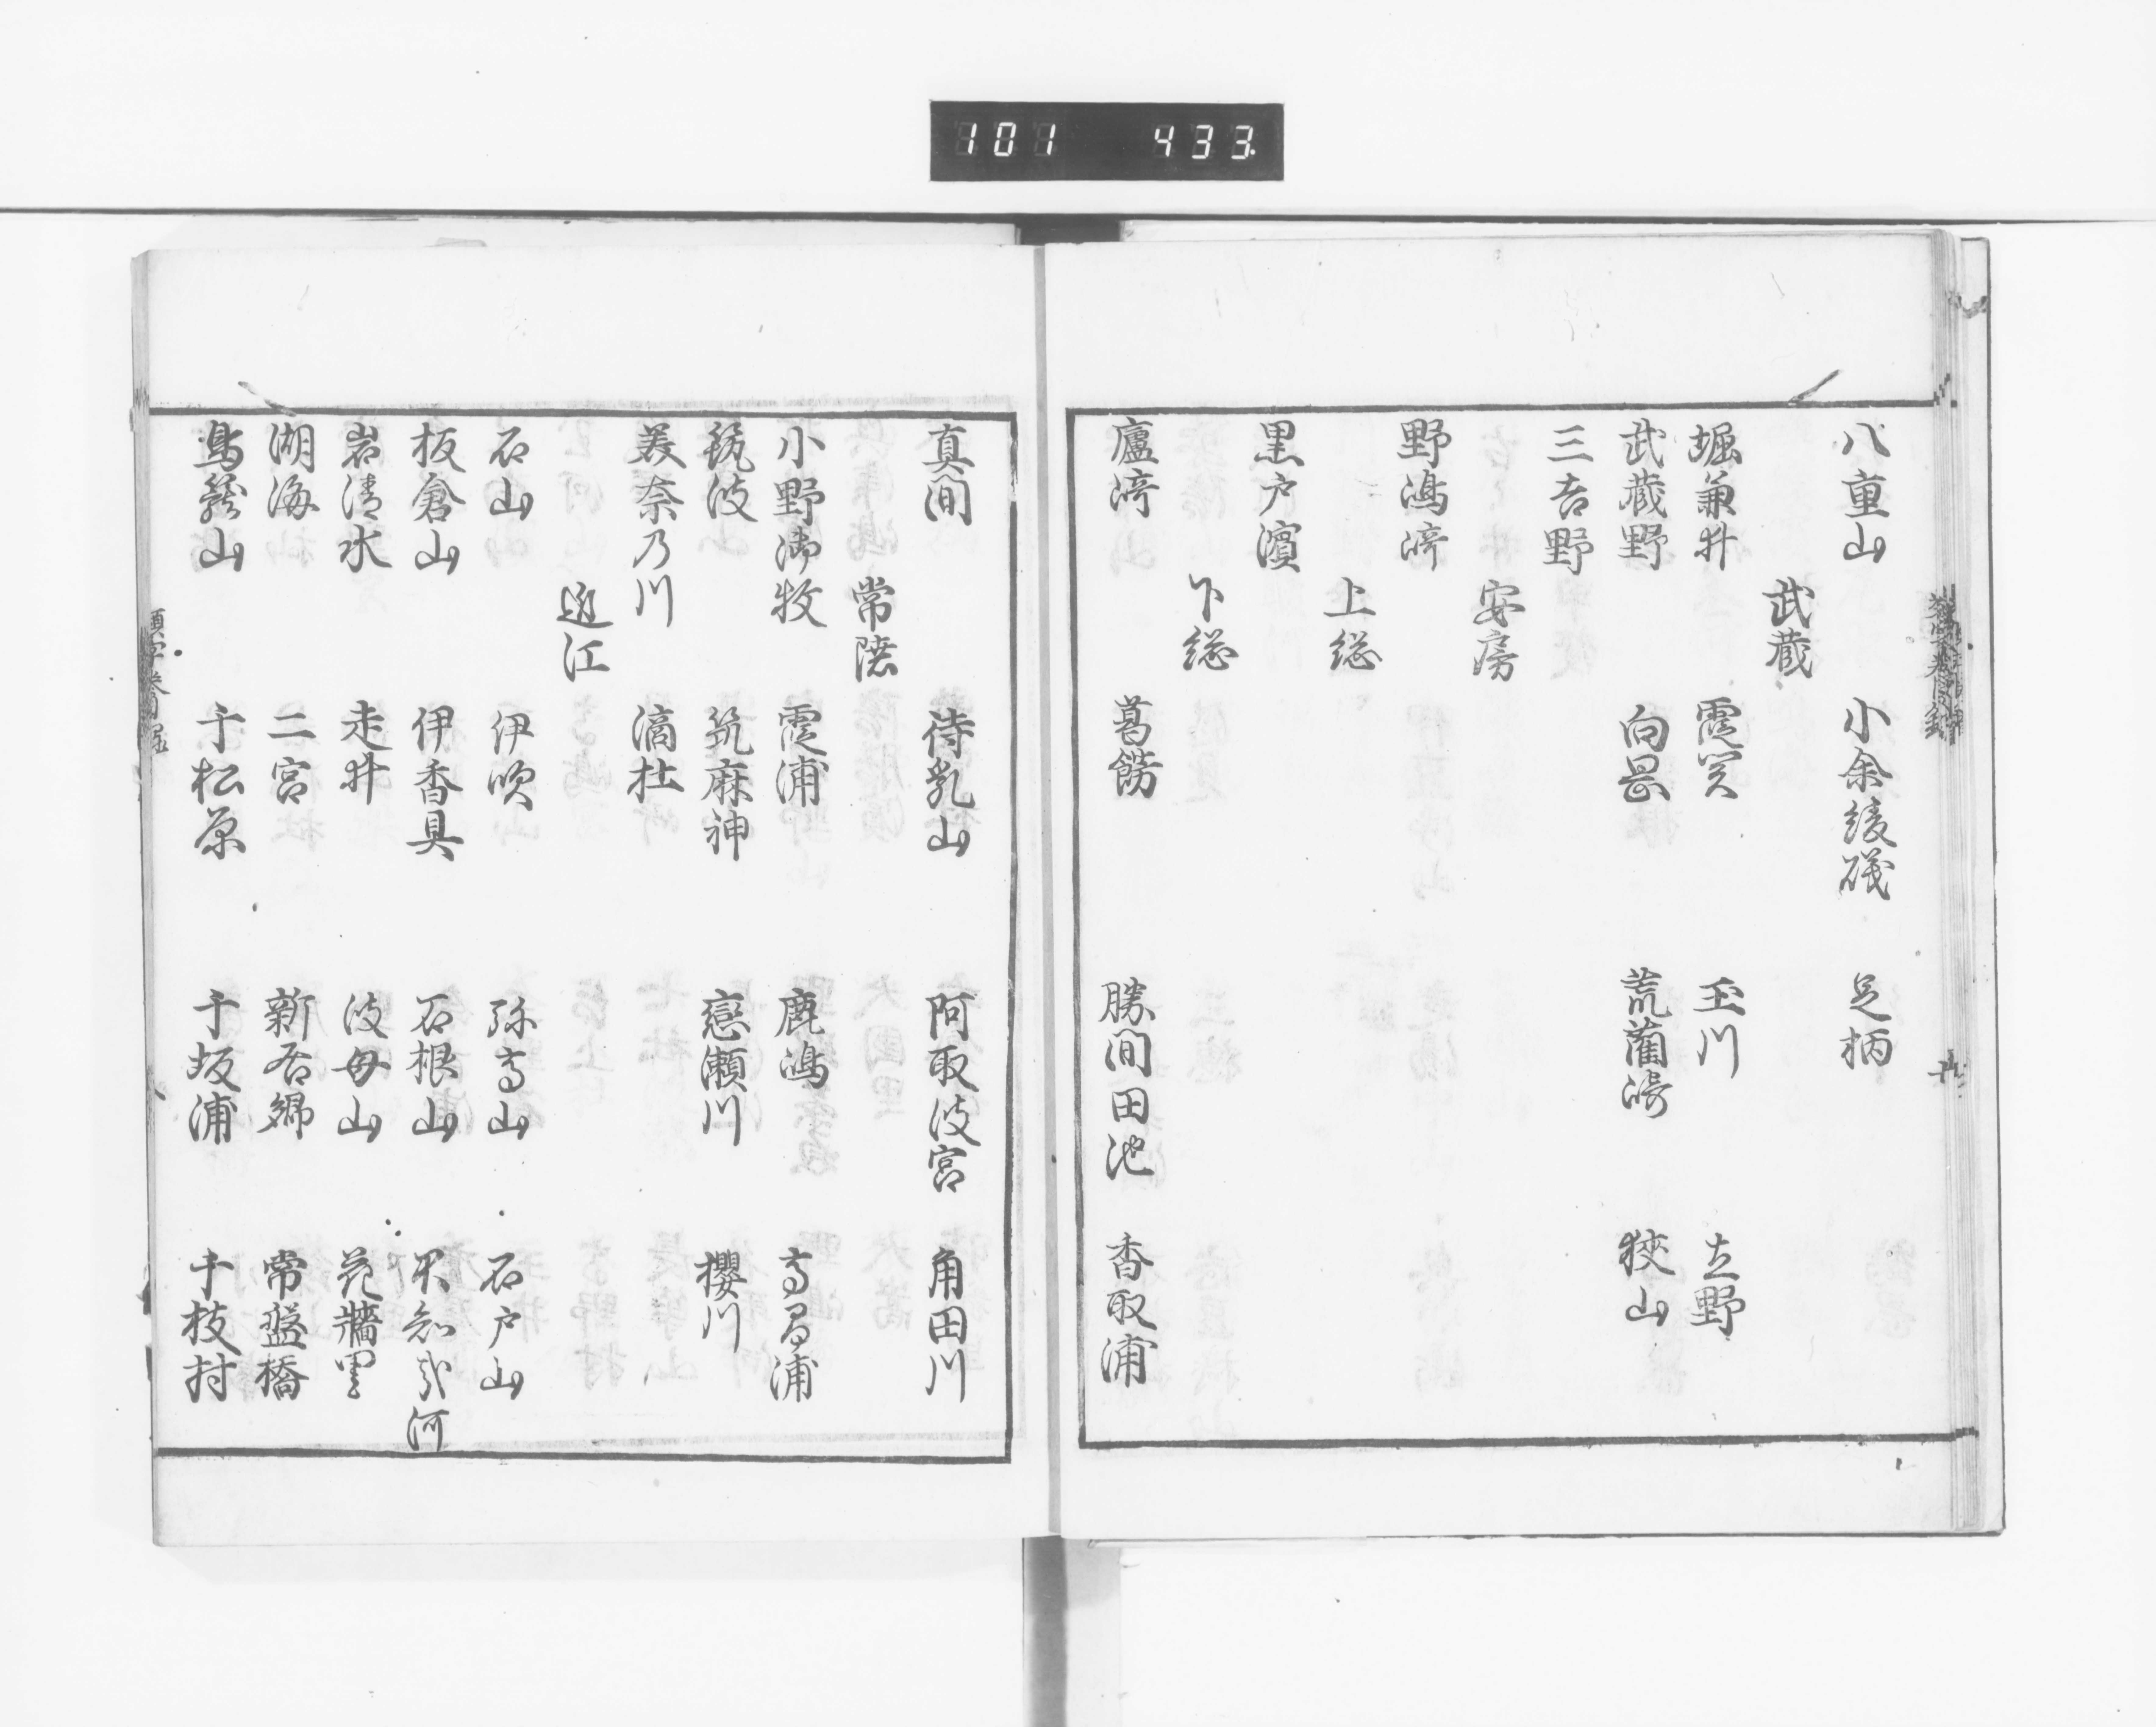 101 433
八重山 小余綾磯 足柄
武蔵
堀兼井 霞関 玉川 立野
武蔵野 向岡 荒藺崎 狭山
三吉野
安房
野嶋崎
上総
黒戸濱
下総
廬崎 葛餝 勝間田池 香取浦
真間 待乳山 阿取波宮 角田川
常陸
小野御牧 霞浦 鹿嶋 高間浦
筑波 筑麻神 戀瀬川 櫻川
美奈乃川 滴杜
近江
石山 伊吹 弥高山 石戸山
板倉山 伊香具 石根山 不知哉河
岩清水 走井 波母山 花牆里
湖海 二宮 新居郷 常盤橋
鳥籠山 千松原 千坂浦 千枝村